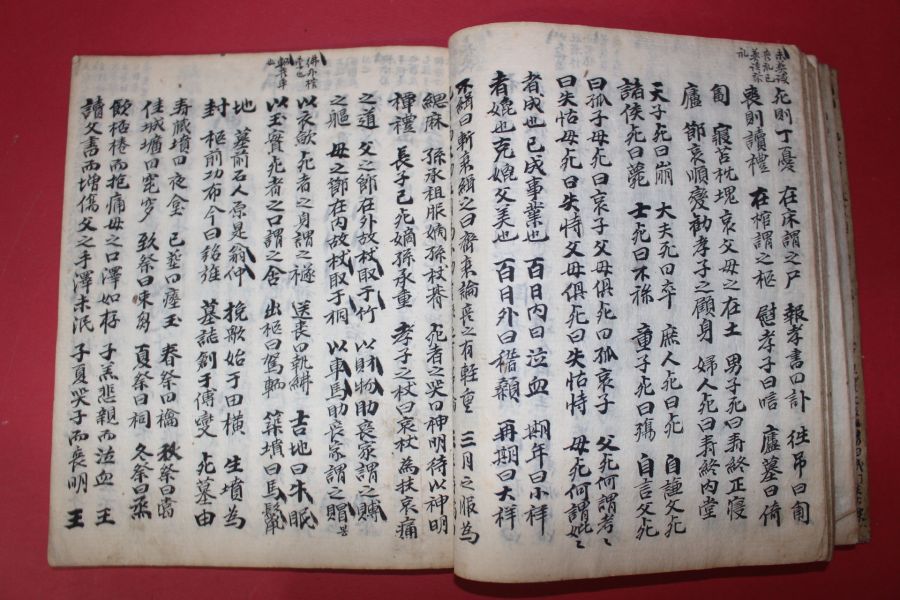 死則丁憂 在床謂之尸 報孝書曰訃 往吊曰
喪則讀禮 在棺謂之柩 慰孝子曰唁 廬墓曰倚
廬 寢苫枕塊哀父母之在土 男子死曰壽終正寢
節哀順變勸孝子之顧身 婦人死曰壽終內堂
天子死曰崩 大夫死曰卒 庶人死曰死 自謙父死
諸侯死曰薨 士死曰不祿 童子死曰殤 自言父死
曰孤子母死曰哀子父母俱死曰孤哀子 父死何謂考
曰失怙母死曰失恃父母俱死曰失怙恃 母死何謂妣
者成也已成事業也 百日內曰泣血 期年曰小祥
者媲也克媲父美也 百日外曰稽顙 再期曰大祥
不緝曰斬衰緝之曰齊衰論喪之有輕重 三月之服為
緦麻 孫承祖服嫡孫杖朞 死者之哭曰神明待以神明
禫禮 長子已死嫡孫承重 孝子之杖曰哀杖為扶哀痛
之道 父之節在外故杖取于竹 以財物助喪家謂之賻
之軀 母之節在內故杖取于桐 以車馬助喪家謂之賵
以衣歛死者之身謂之襚 送喪曰執紼 吉地曰牛眠
以玉實死者之口謂之含 出柩曰駕輀 築墳曰馬鬣
地 墓前石人原是翁仲 挽歌始于田橫 生墳為
封 柩前功布今曰銘旌 墓誌創于傅奕 死墓由
壽藏墳曰夜台 已葬曰瘞玉 春祭曰禴 秋祭曰嘗
佳城壙曰窀穸 致祭曰束芻 夏祭曰祠 冬祭曰烝
飲桮棬而抱痛母之口澤如存 子羔悲親而泣血 王
讀父書而增傷父之手澤未泯 子夏哭子而喪明 王